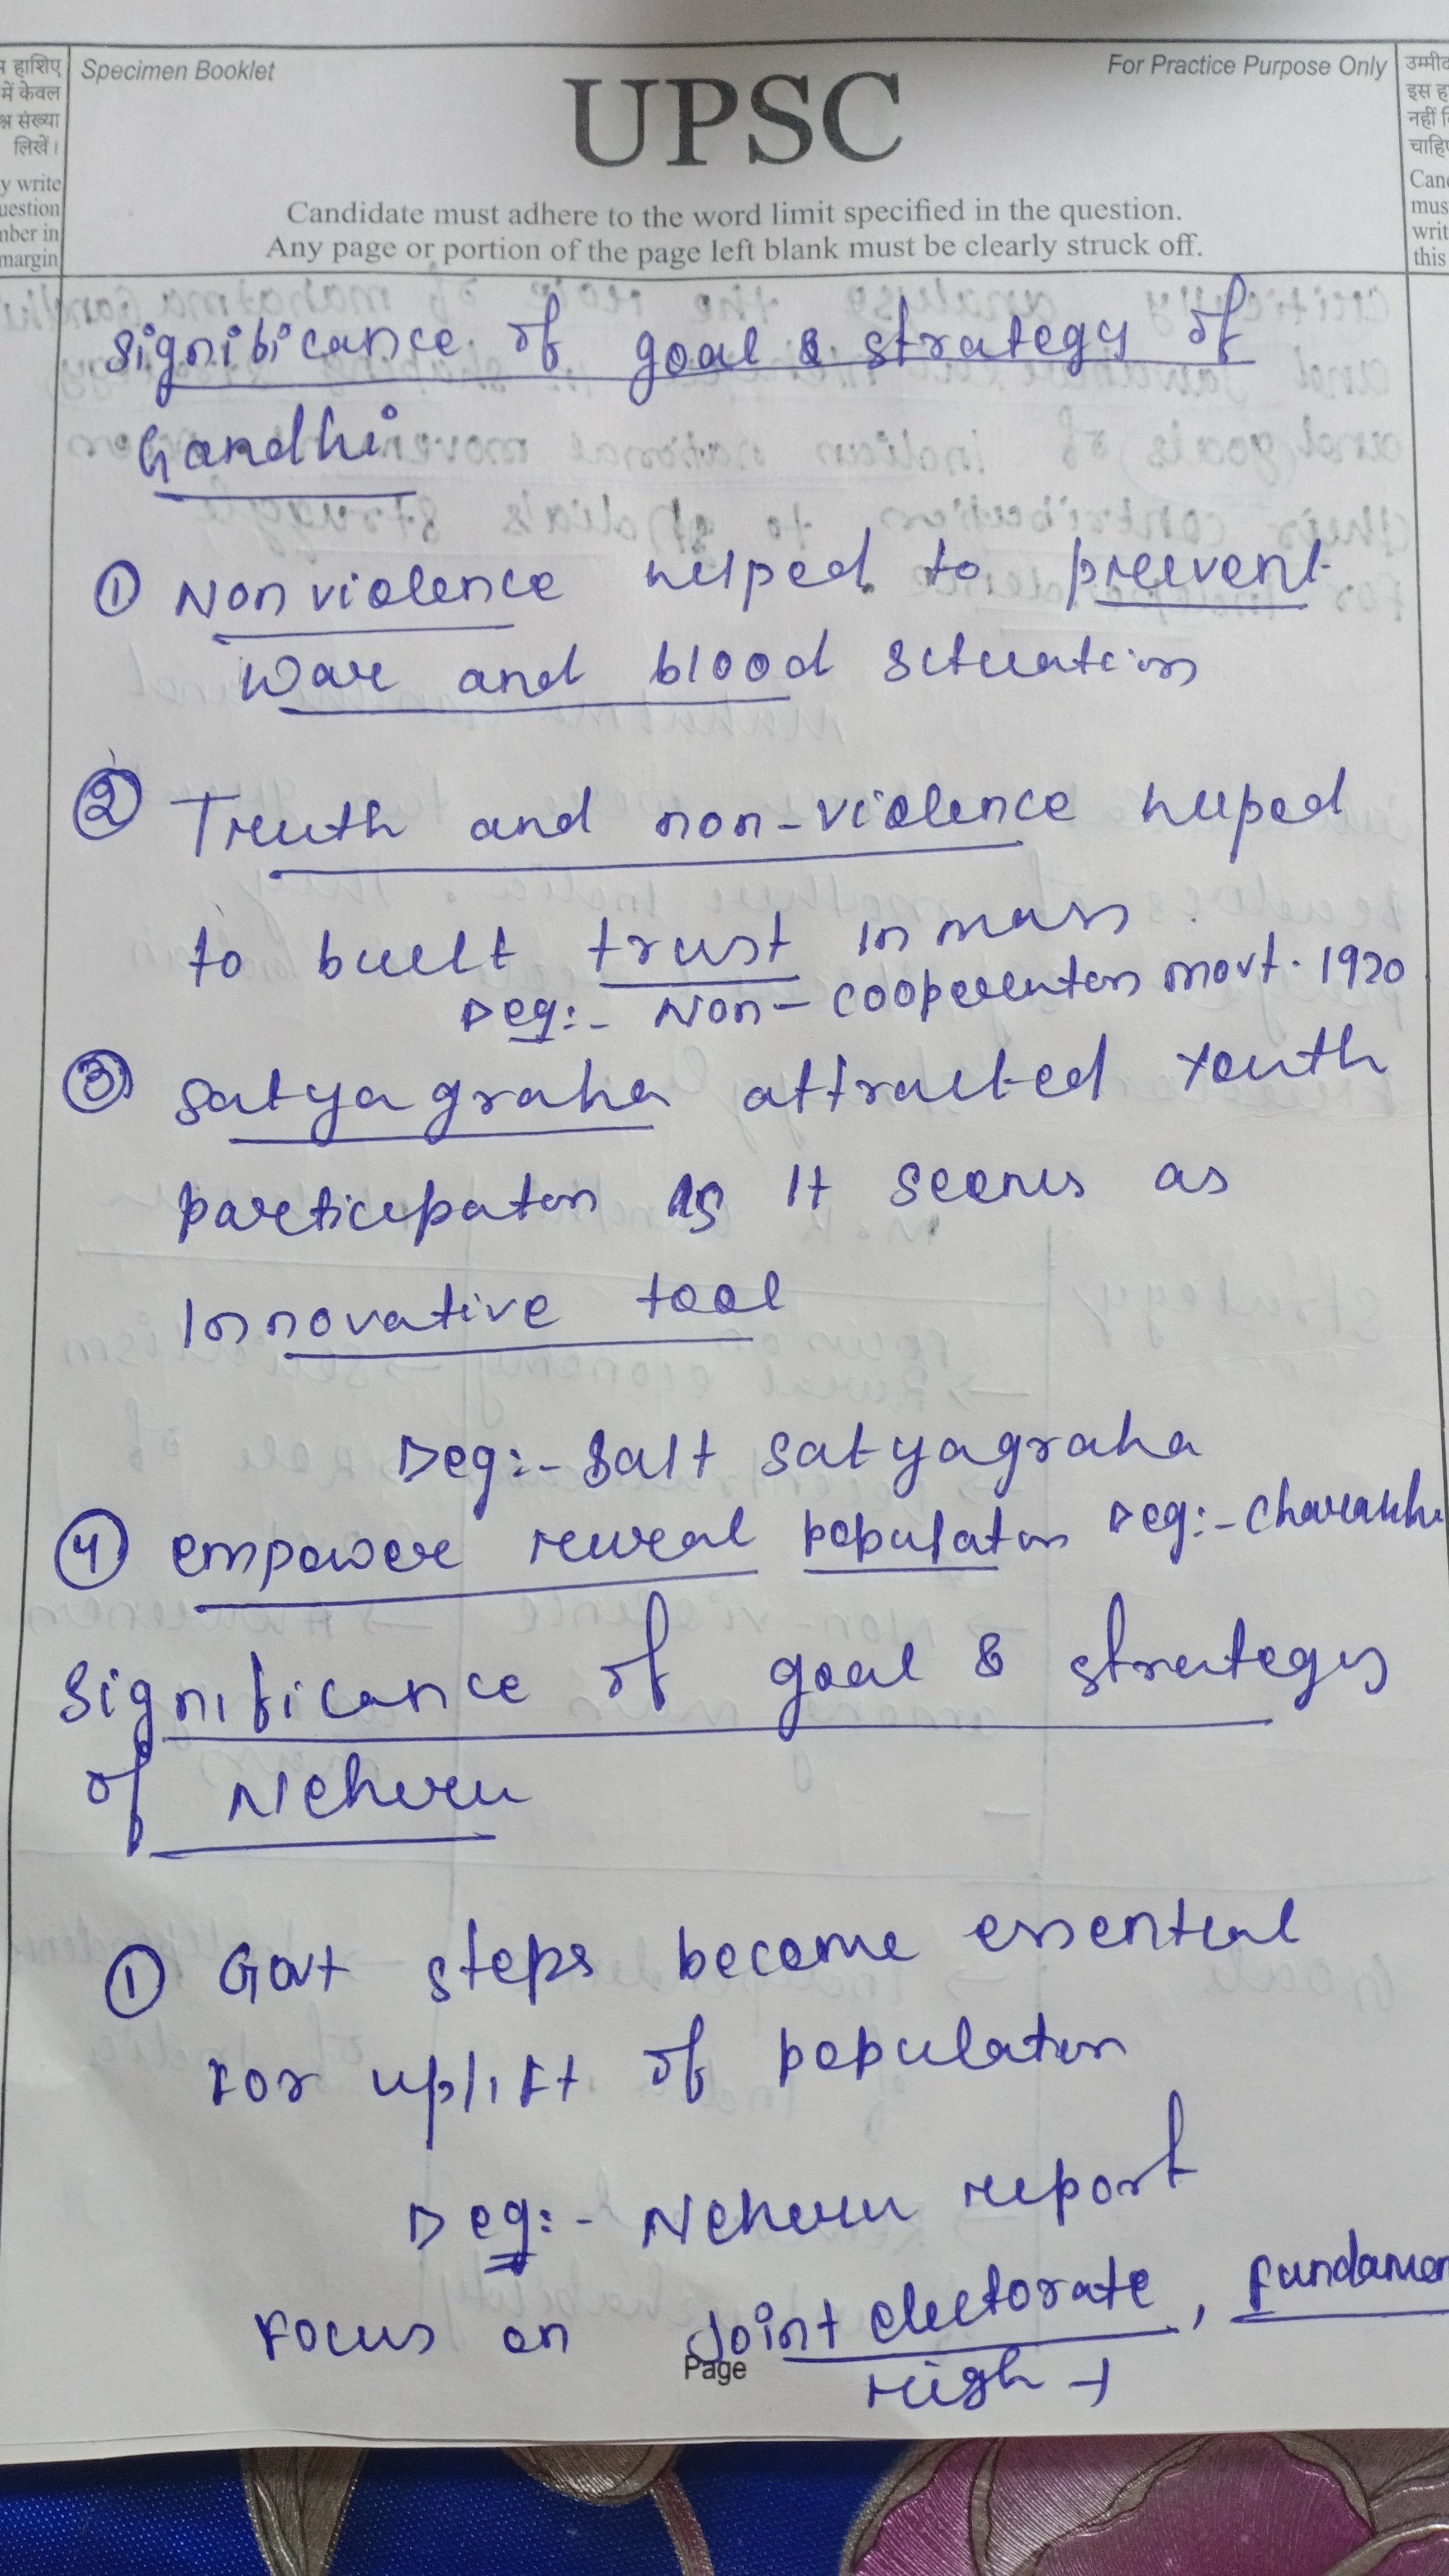 Specimen Booklet
UPSC
For Practice Purpose Only
Candidate must adhere to the word limit specified in the question.
Any page or portion of the page left blank must be clearly struck off.
हाशिए
में केवल
संख्या
लिखें।
write
margin
Significance of goal & strategy of
Gandhi
① Nonviolence helped to prevent
War and blood situation
② Truth and non-violence helped
to built trust in mass
eg:- Non-cooperation movt. 1920
③ Satyagraha attracted youth
participation as it seems as
Innovative tool
eg:- Salt satyagraha
④ empower rural population eg:-
Significance of goal & strategy
of Nehru
① Govt steps become essential
for uplift of population
eg:- Nehru report
Focus on Joint electorate,
right
Page